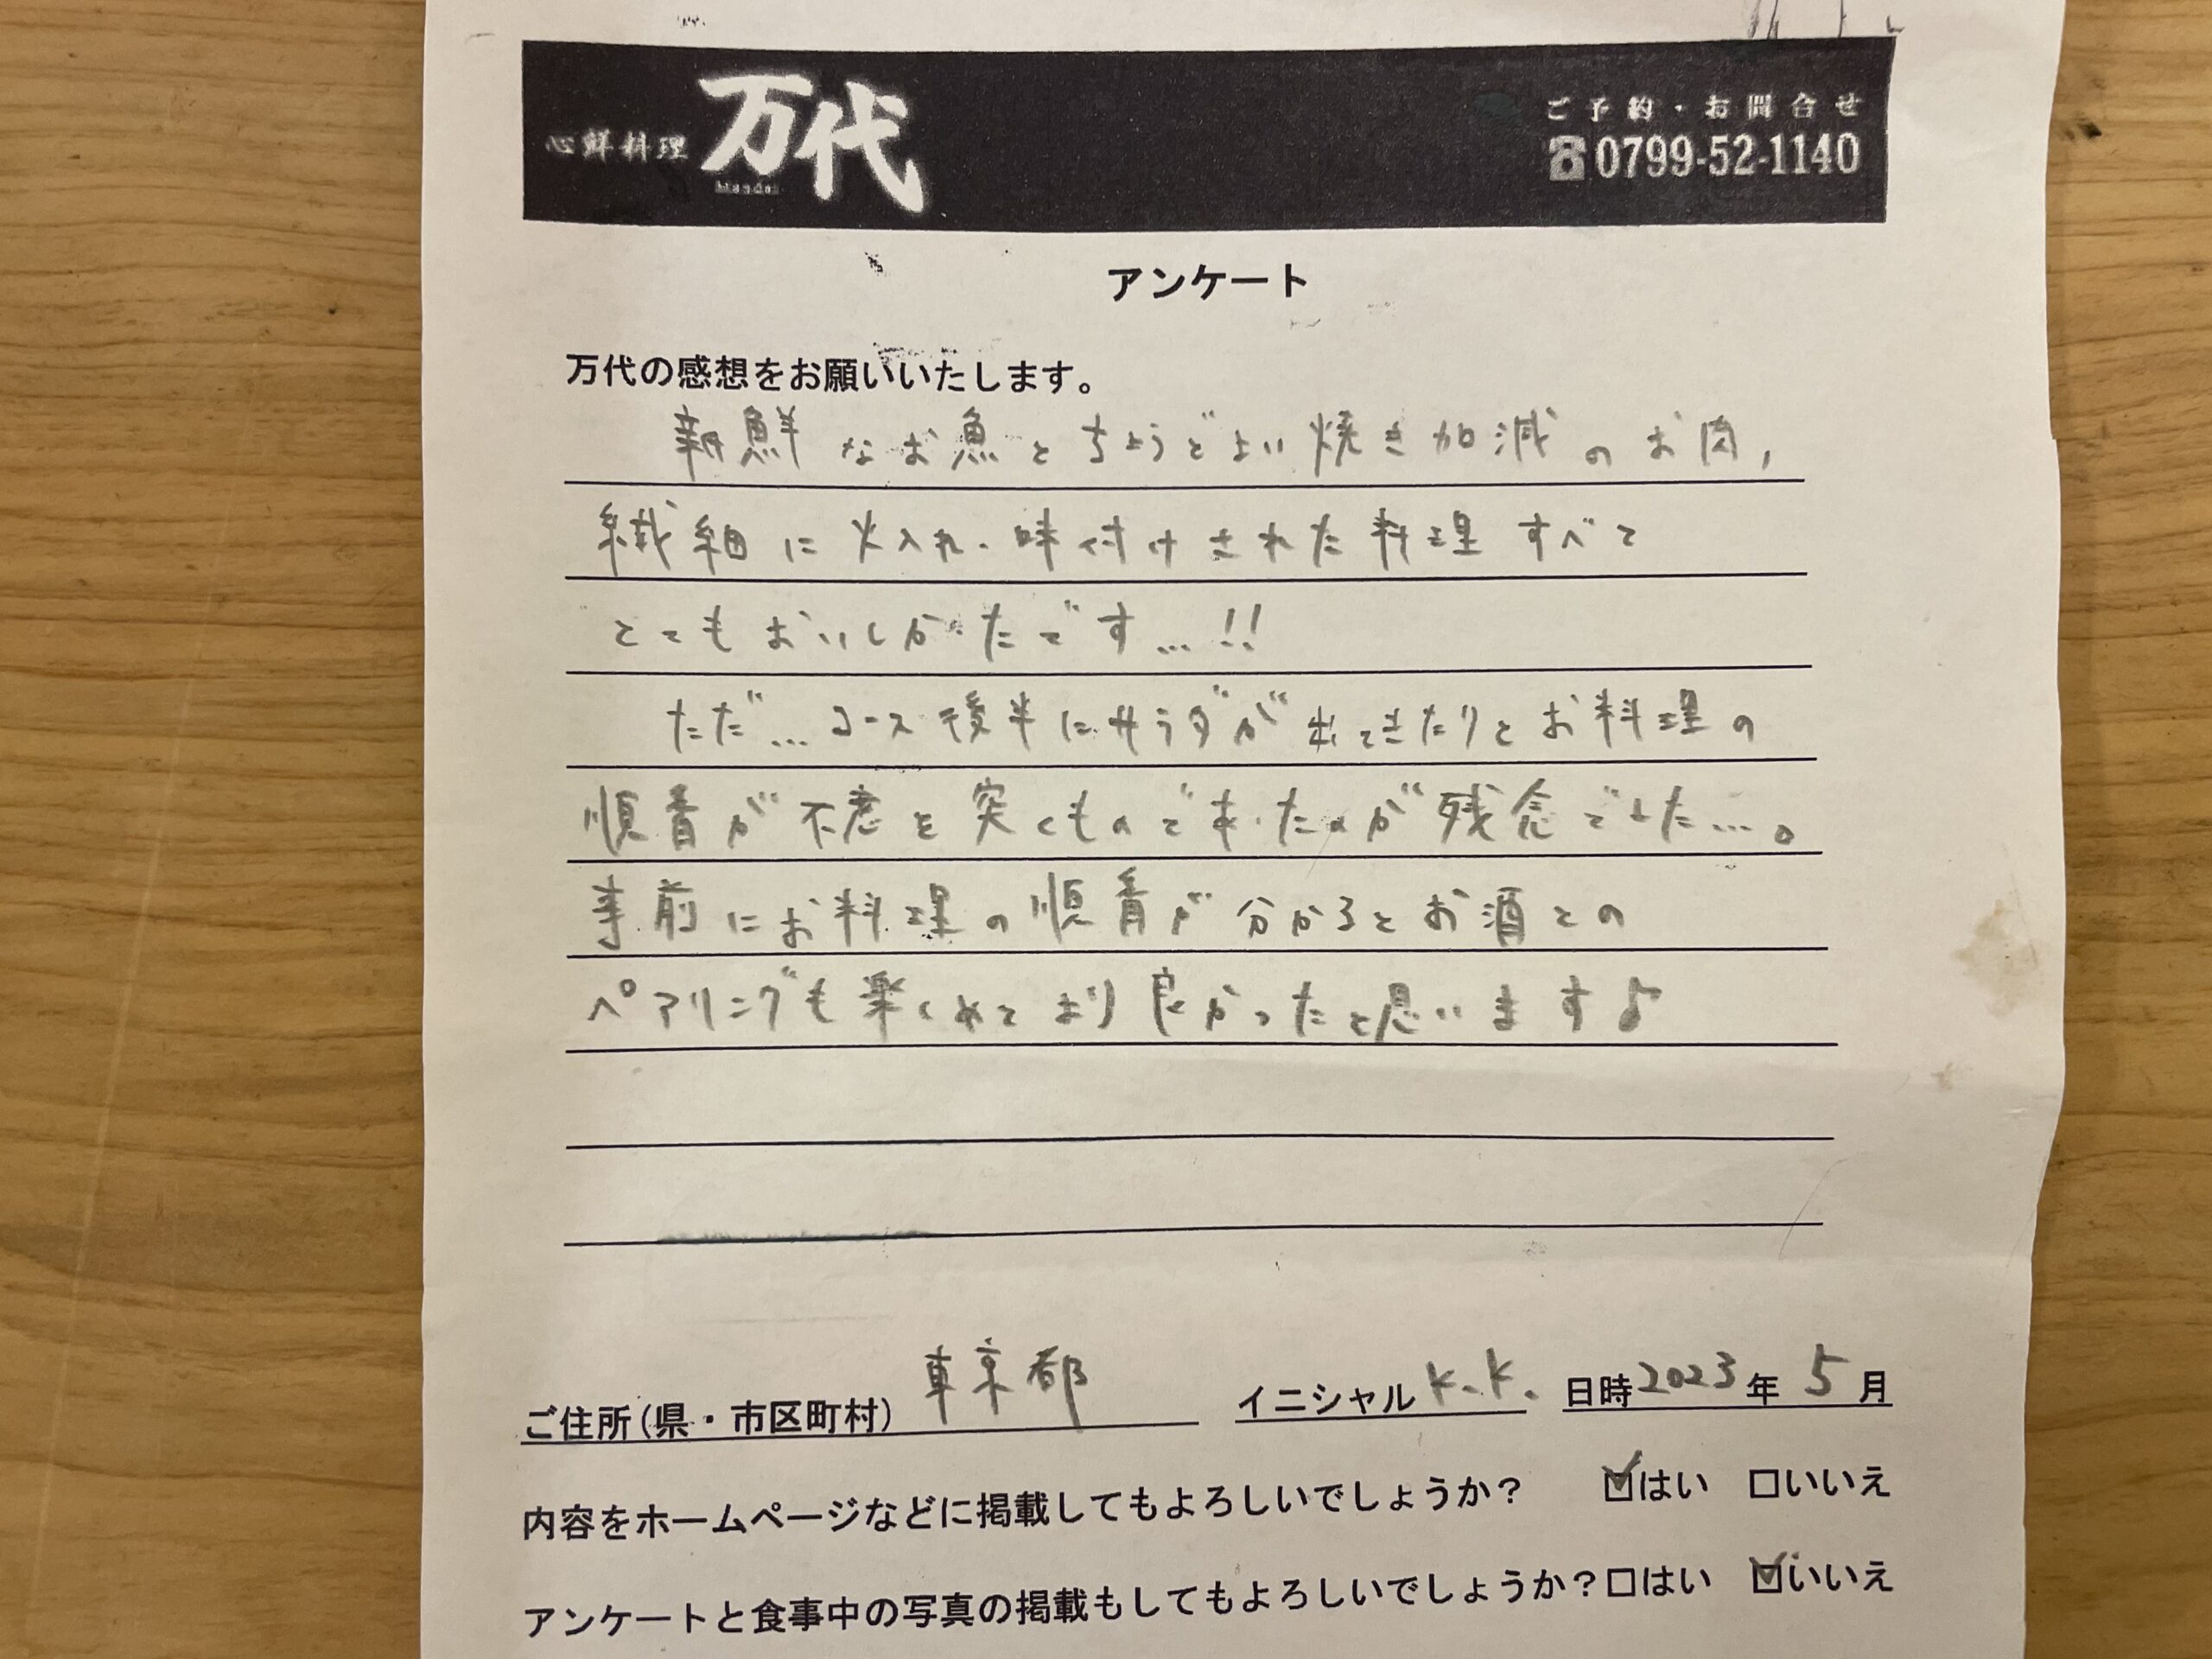 心鮮料理 万代
bandai
ご予約・お問合せ
☎0799-52-1140
アンケート
万代の感想をお願いいたします。
新鮮なお魚とちょうどよい焼き加減のお肉,
繊細に火入れ・味付けされた料理すべて
とてもおいしかったです…!!
ただ…コース後半にサラダが出てきたりとお料理の
順番が不意を突くものであったのが残念でした…。
事前にお料理の順番が分かるとお酒との
ペアリングも楽しめてより良かったと思います♪
ご住所(県・市区町村) 東京都 イニシャル K.K. 日時 2023年 5月
内容をホームページなどに掲載してもよろしいでしょうか? ☑はい □いいえ
アンケートと食事中の写真の掲載もしてもよろしいでしょうか?□はい ☑いいえ